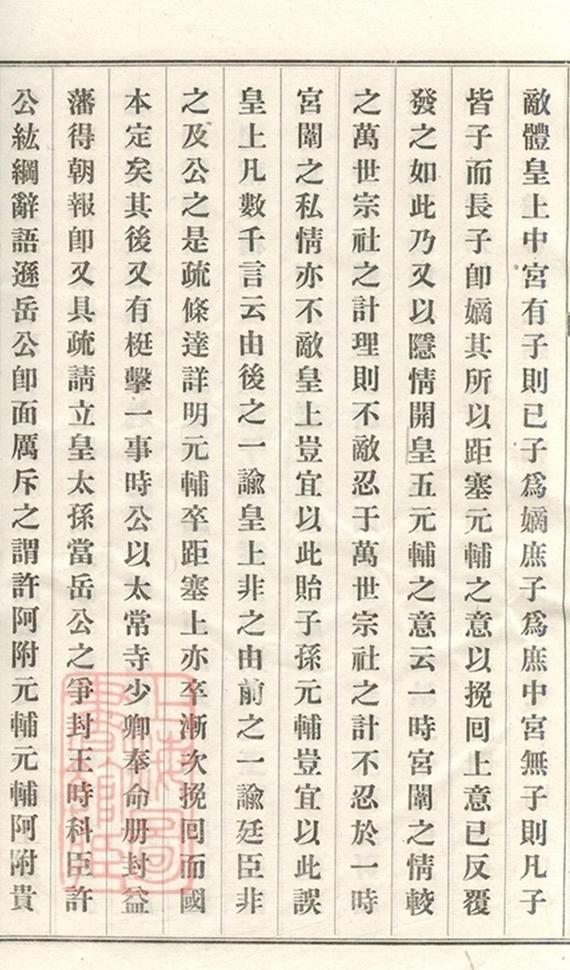 敵體皇上中宮有子則已子爲嫡庶子爲庶中宮無子則凡子
皆子而長子卽嫡其所以距塞元輔之意以挽回上意已反覆
發之如此乃又以隱情開皇五元輔之意云一時宮闈之情較
之萬世宗社之計理則不敵忍于萬世宗社之計不忍於一時
宮闈之私情亦不敵皇上豈宜以此貽子孫元輔豈宜以此誤
皇上凡數千言云由後之一諭皇上非之由前之一諭廷臣非
之及公之是疏條達詳明元輔卒距塞上亦卒漸次挽回而國
本定矣其後又有梃擊一事時公以太常寺少卿奉命册封益
藩得朝報卽又具疏請立皇太孫當岳公之爭封王時科臣許
公紘綱辭語遜岳公卽面厲斥之謂許阿附元輔元輔阿附貴